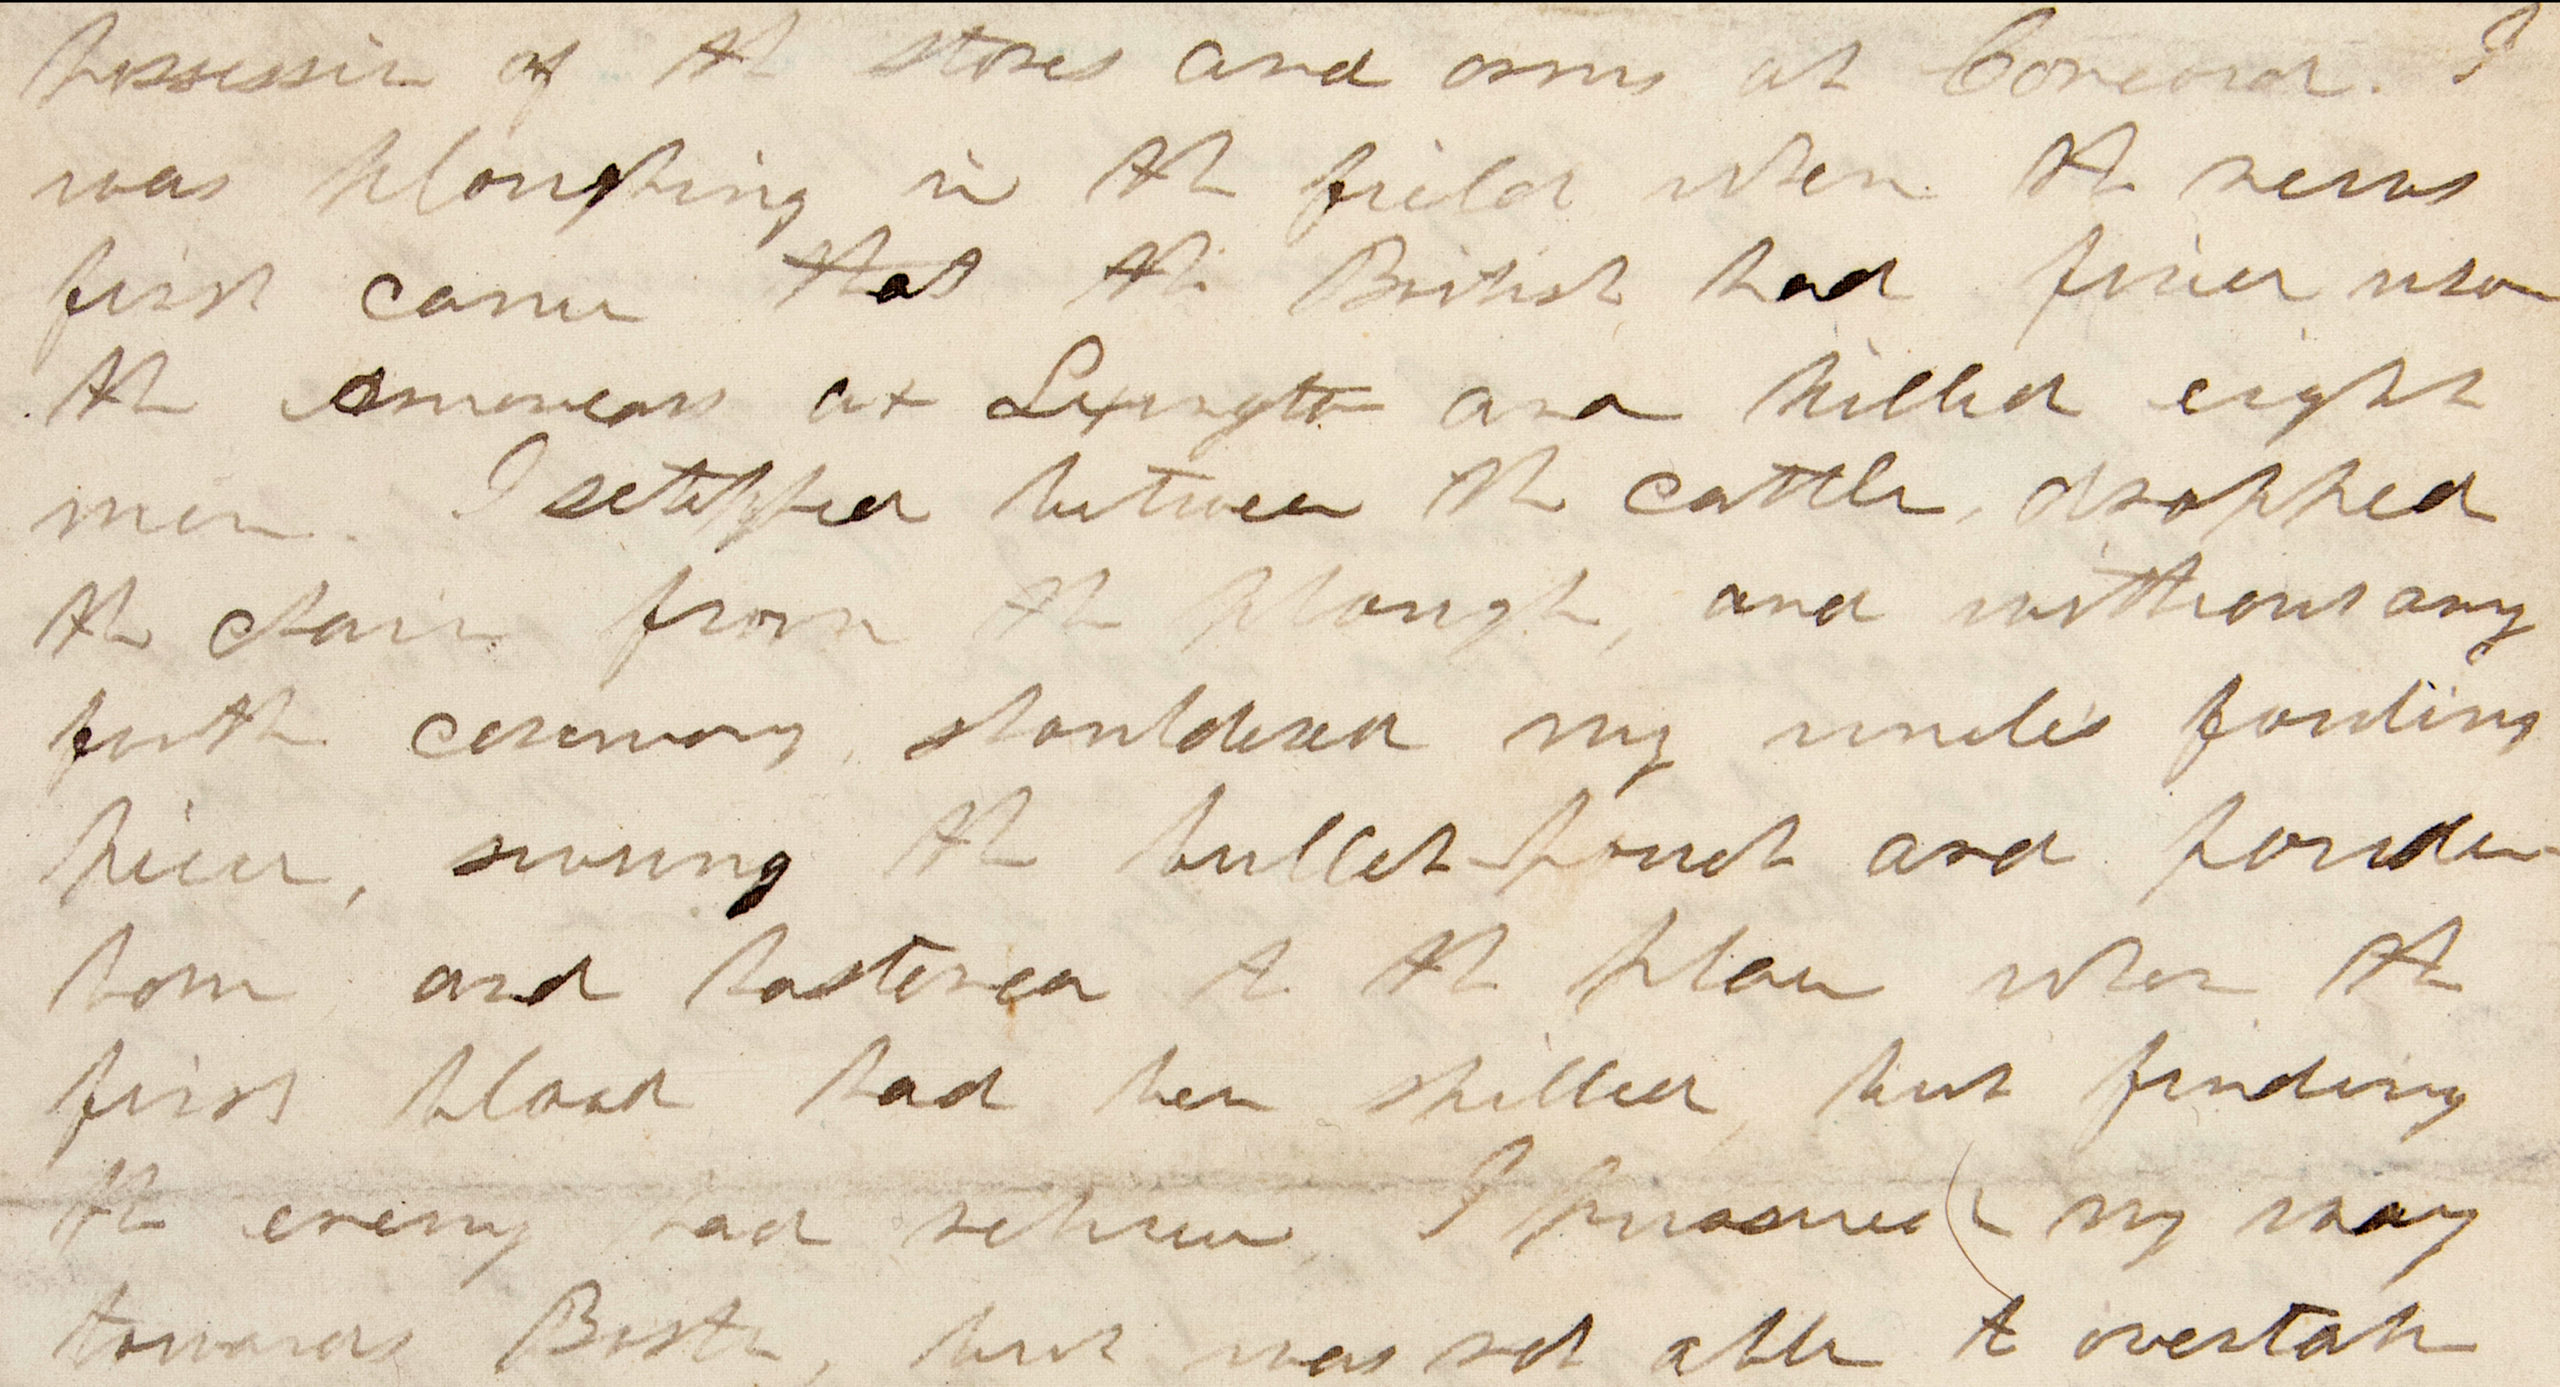 possession of the stores and arms at Concord. I
was ploughing in the field when the news
first came that the British had fired upon
the Americans at Lexington and killed eight
men. I stepped between the cattle, dropped
the chain from the plough, and without any
further ceremony, shouldered my uncle's fowling
piece, swung the bullet-pouch and powder-
horn and hastened to the place where the
first blood had been spilled, but finding
the enemy had retired, I pursued my way
towards Boston, but was not able to overtake